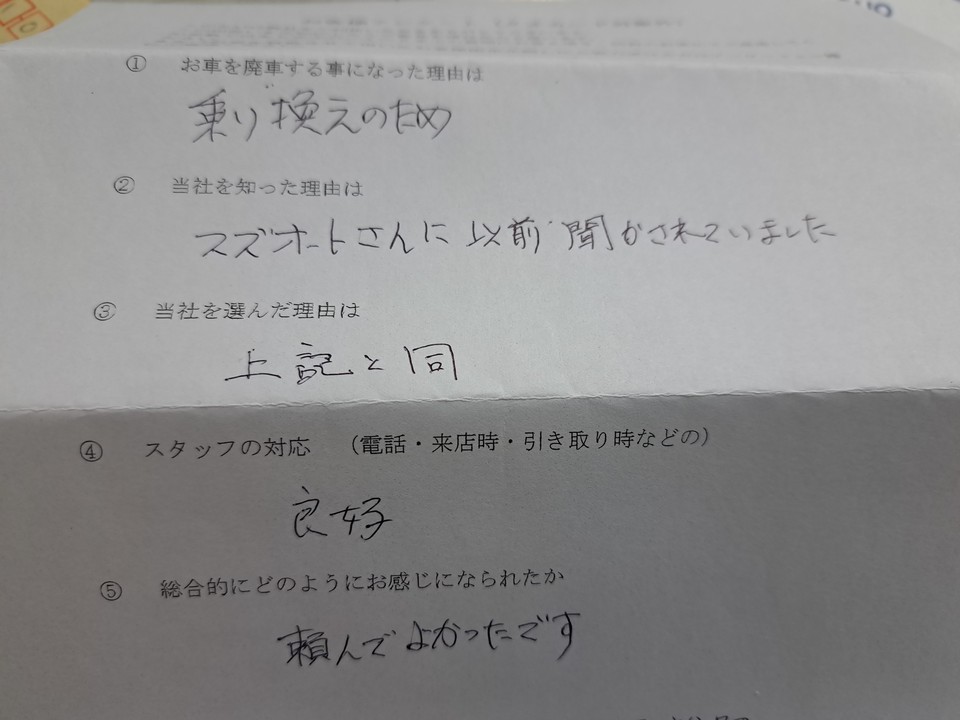 ① お車を廃車する事になった理由は
乗り換えのため
② 当社を知った理由は
スズオートさんに以前聞かされていました
③ 当社を選んだ理由は
上記と同
④ スタッフの対応 （電話・来店時・引き取り時などの）
良好
⑤ 総合的にどのようにお感じになられたか
頼んでよかったです